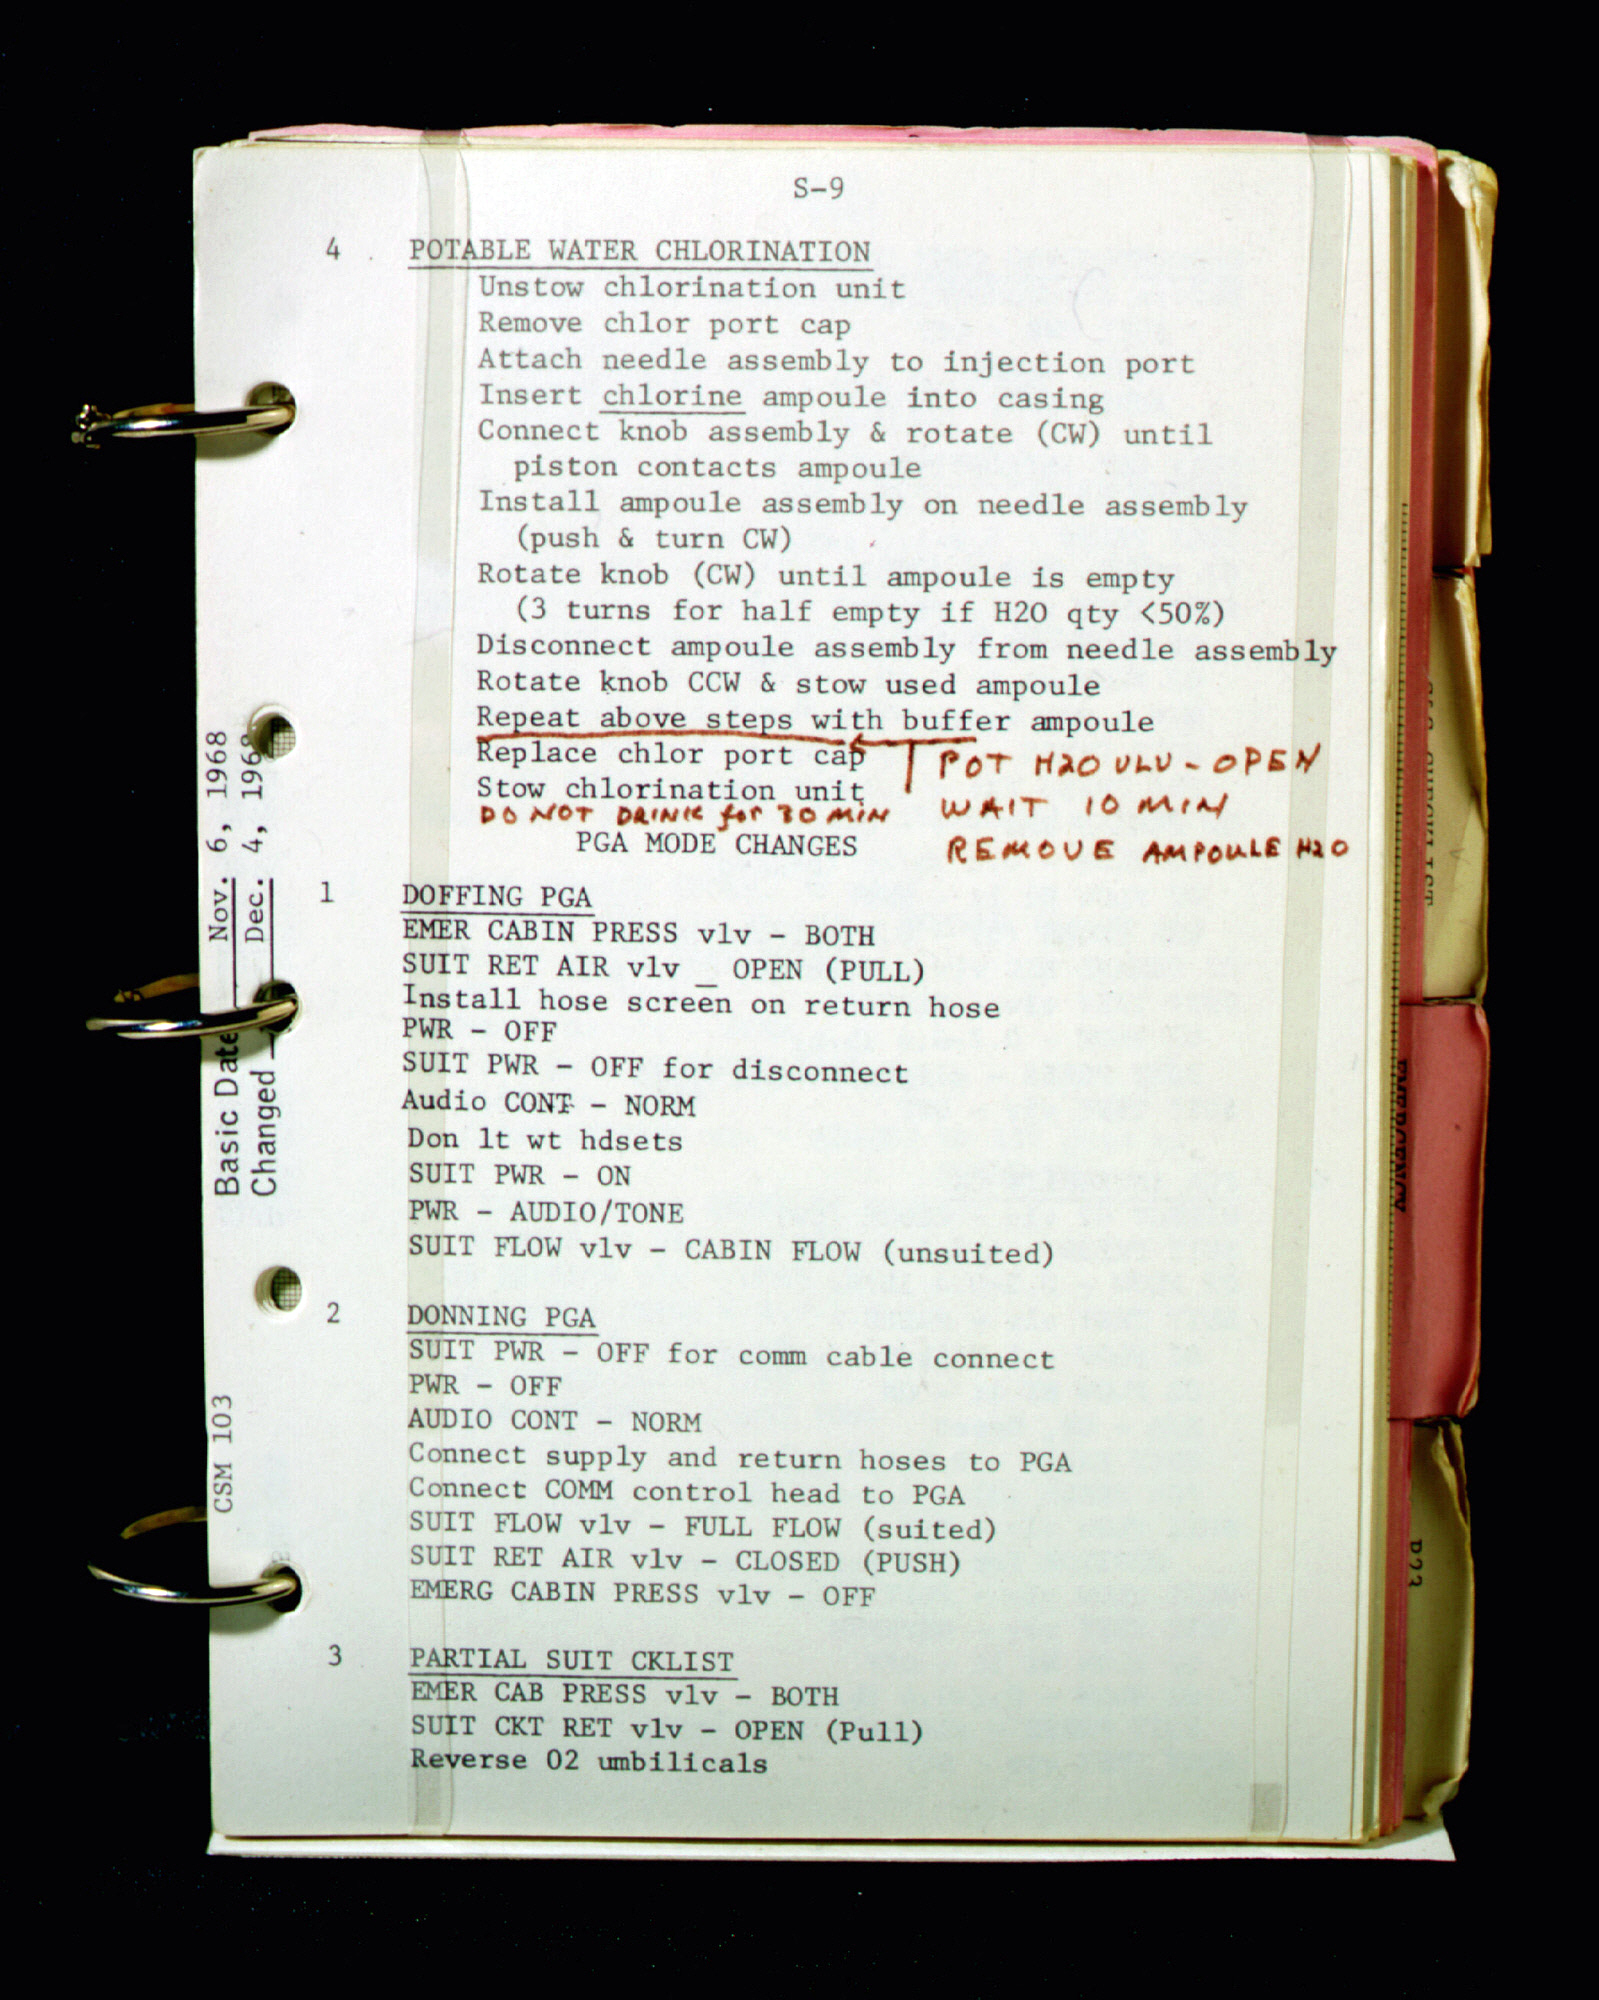 S-9
4 POTABLE WATER CHLORINATION
Unstow chlorination unit
Remove chlor port cap
Attach needle assembly to injection port
Insert chlorine ampoule into casing
Connect knob assembly & rotate (CW) until
piston contacts ampoule
Install ampoule assembly on needle assembly
(push & turn CW)
Rotate knob (CW) until ampoule is empty
(3 turns for half empty if H2O qty <50%)
Disconnect ampoule assembly from needle assembly
Rotate knob CCW & stow used ampoule
Repeat above steps with buffer ampoule
Replace chlor port cap
POT H2O VLV - OPEN
Stow chlorination unit
WAIT 10 MIN
DO NOT DRINK for 30 MIN
REMOVE AMPOULE H2O
PGA MODE CHANGES
1 DOFFING PGA
EMER CABIN PRESS vlv - BOTH
SUIT RET AIR vlv _ OPEN (PULL)
Install hose screen on return hose
PWR - OFF
SUIT PWR - OFF for disconnect
Audio CONT - NORM
Don lt wt hdsets
SUIT PWR - ON
PWR - AUDIO/TONE
SUIT FLOW vlv - CABIN FLOW (unsuited)
2 DONNING PGA
SUIT PWR - OFF for comm cable connect
PWR - OFF
AUDIO CONT - NORM
Connect supply and return hoses to PGA
Connect COMM control head to PGA
SUIT FLOW vlv - FULL FLOW (suited)
SUIT RET AIR vlv - CLOSED (PUSH)
EMERG CABIN PRESS vlv - OFF
3 PARTIAL SUIT CKLIST
EMER CAB PRESS vlv - BOTH
SUIT CKT RET vlv - OPEN (Pull)
Reverse O2 umbilicals
Basic Date Nov. 6, 1968
Changed Dec. 4, 1968
CSM 103
EMERGENCY
P23